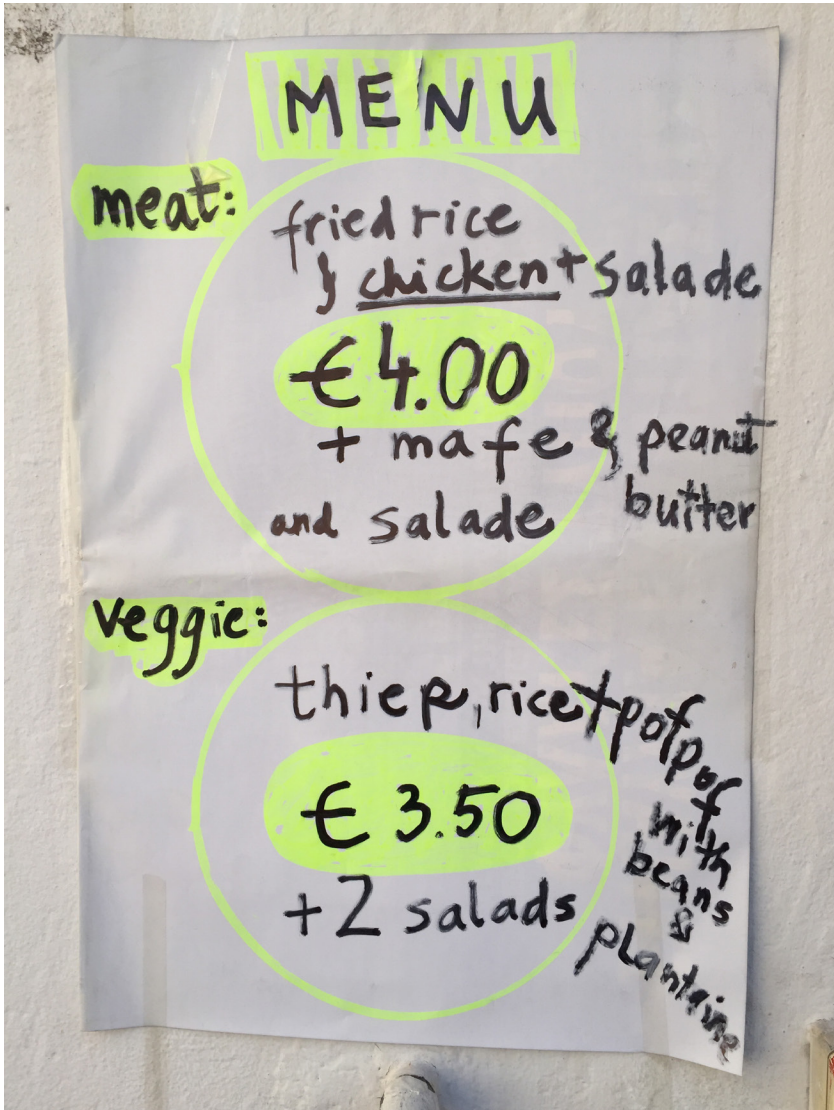 MENU
meat:
fried rice
& chicken + salade
€4.00
+ mafe & peanut
butter
and salade
veggie:
thiep, rice + pofpof
with
beans
&
plantaine
€ 3.50
+ 2 salads